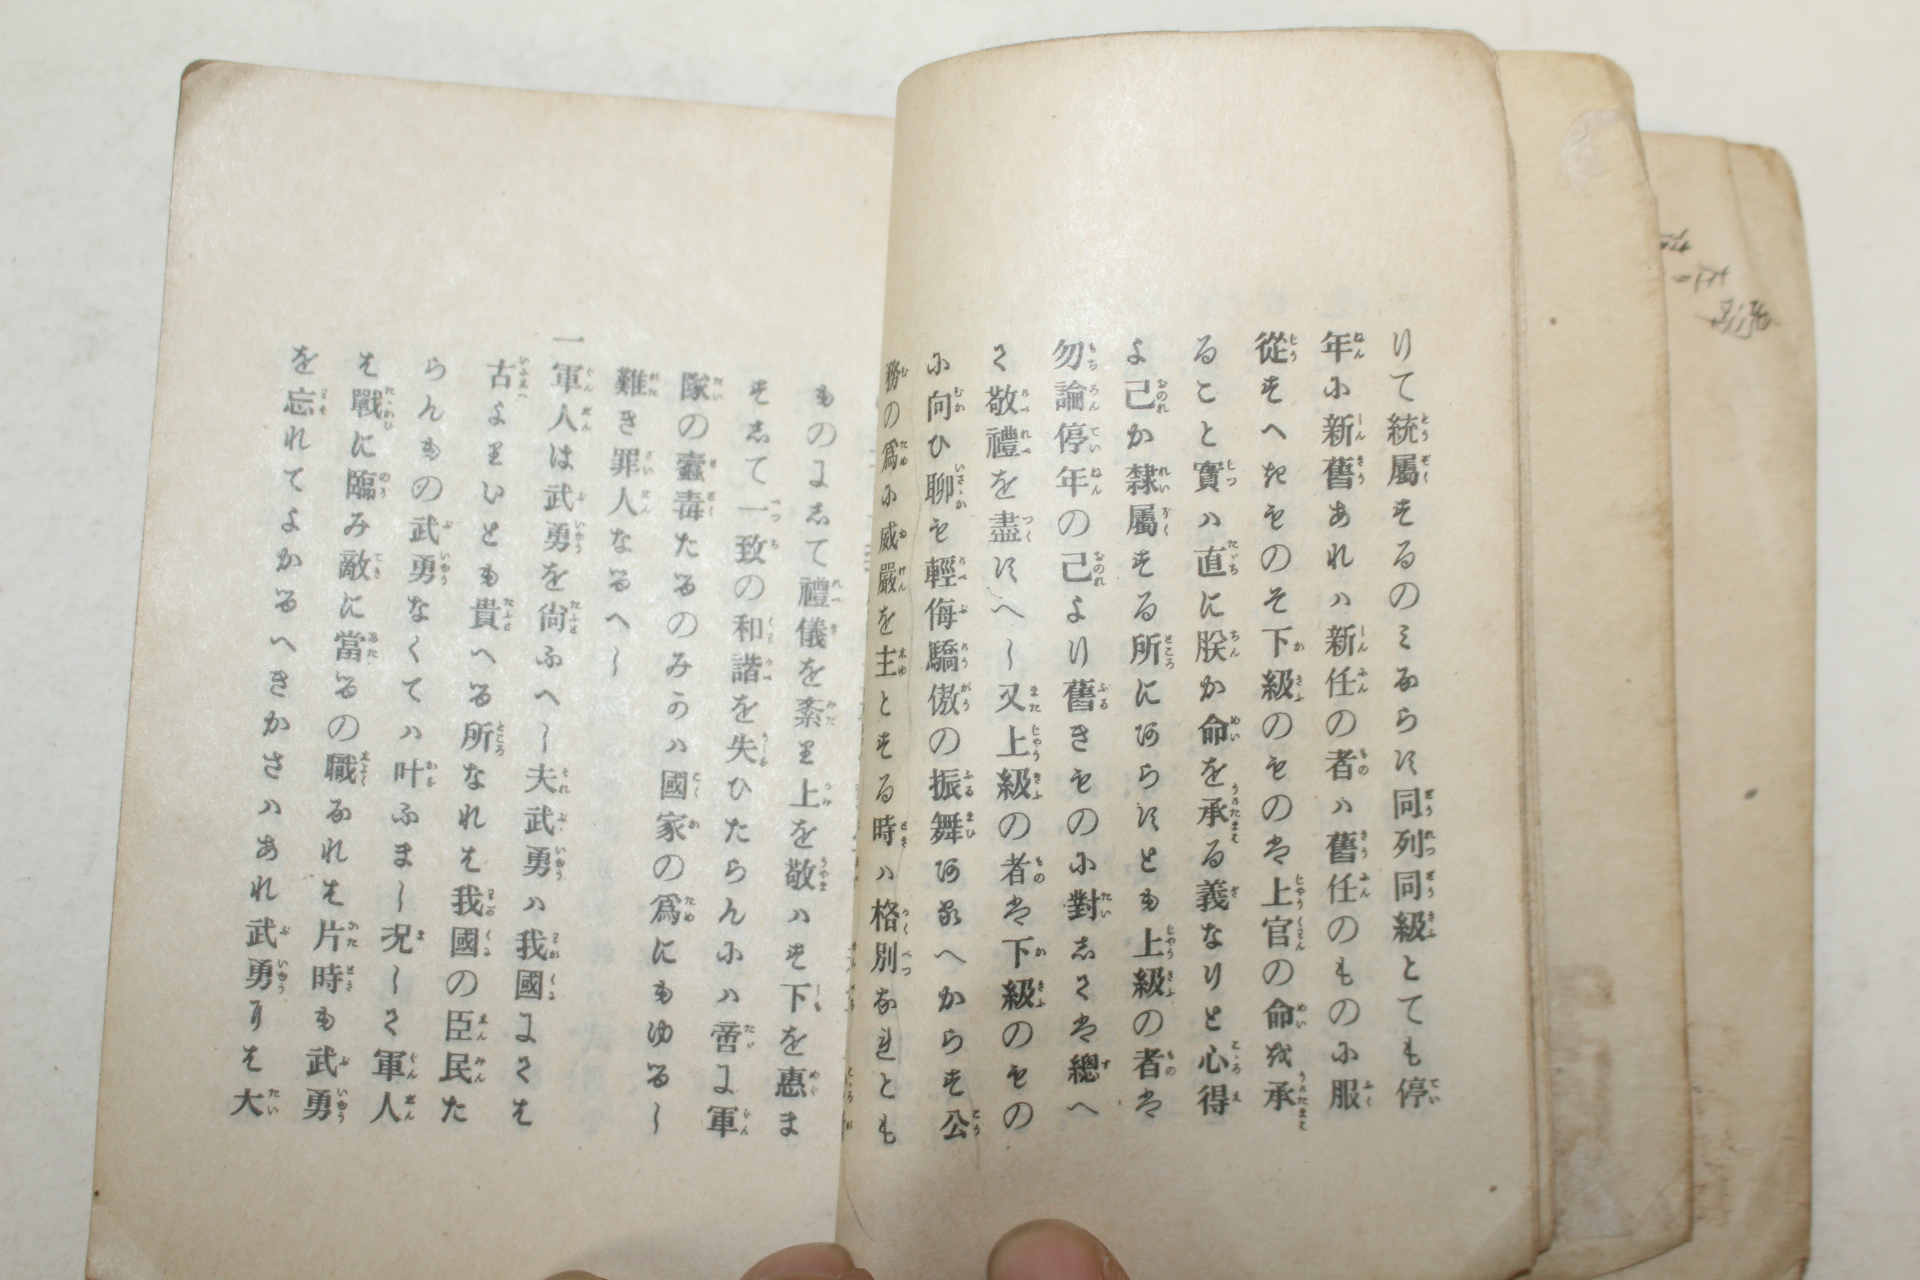 りて統屬するのミならす同列同級とても停
年に新舊あれハ新任の者ハ舊任のものに服
從すへきものそ下級のものは上官の命を承
ること實ハ直に朕か命を承る義なりと心得
よ己か隷屬する所にあらすとも上級の者は
勿論停年の己より舊きものに對しては總へ
て敬禮を盡すへし又上級の者は下級のもの
に向ひ聊も輕侮驕傲の振舞あるへからす公
務の爲に威嚴を主とする時ハ格別なれとも
ものにして禮儀を紊り上を敬ハす下を惠ま
すして一致の和諧を失ひたらんにハ啻に軍
隊の蠹毒たるのみかハ國家の爲にもゆるし
難き罪人なるへし
一軍人は武勇を尚ふへし夫武勇ハ我國にては
古よりいとも貴へる所なれは我國の臣民た
らんもの武勇なくてハ叶ふまし況して軍人
は戰に臨み敵に當るの職なれは片時も武勇
を忘れてよかるへきかさハあれ武勇には大